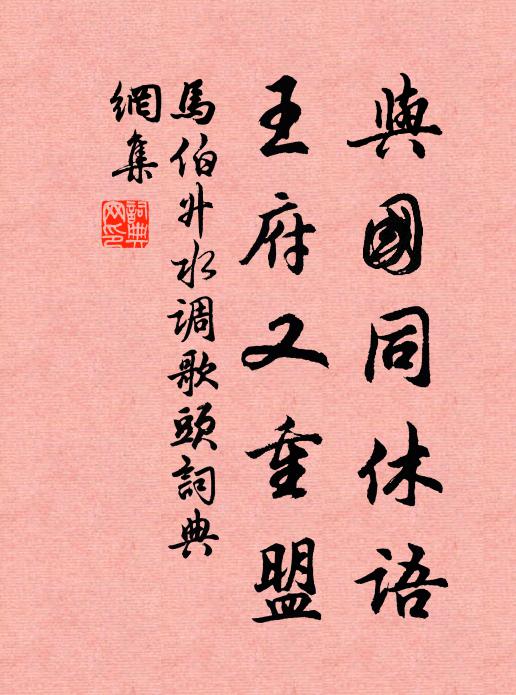 與國同休語
王府又重盟
馬伯升水调歌頭詞典
網集
詞典
网印